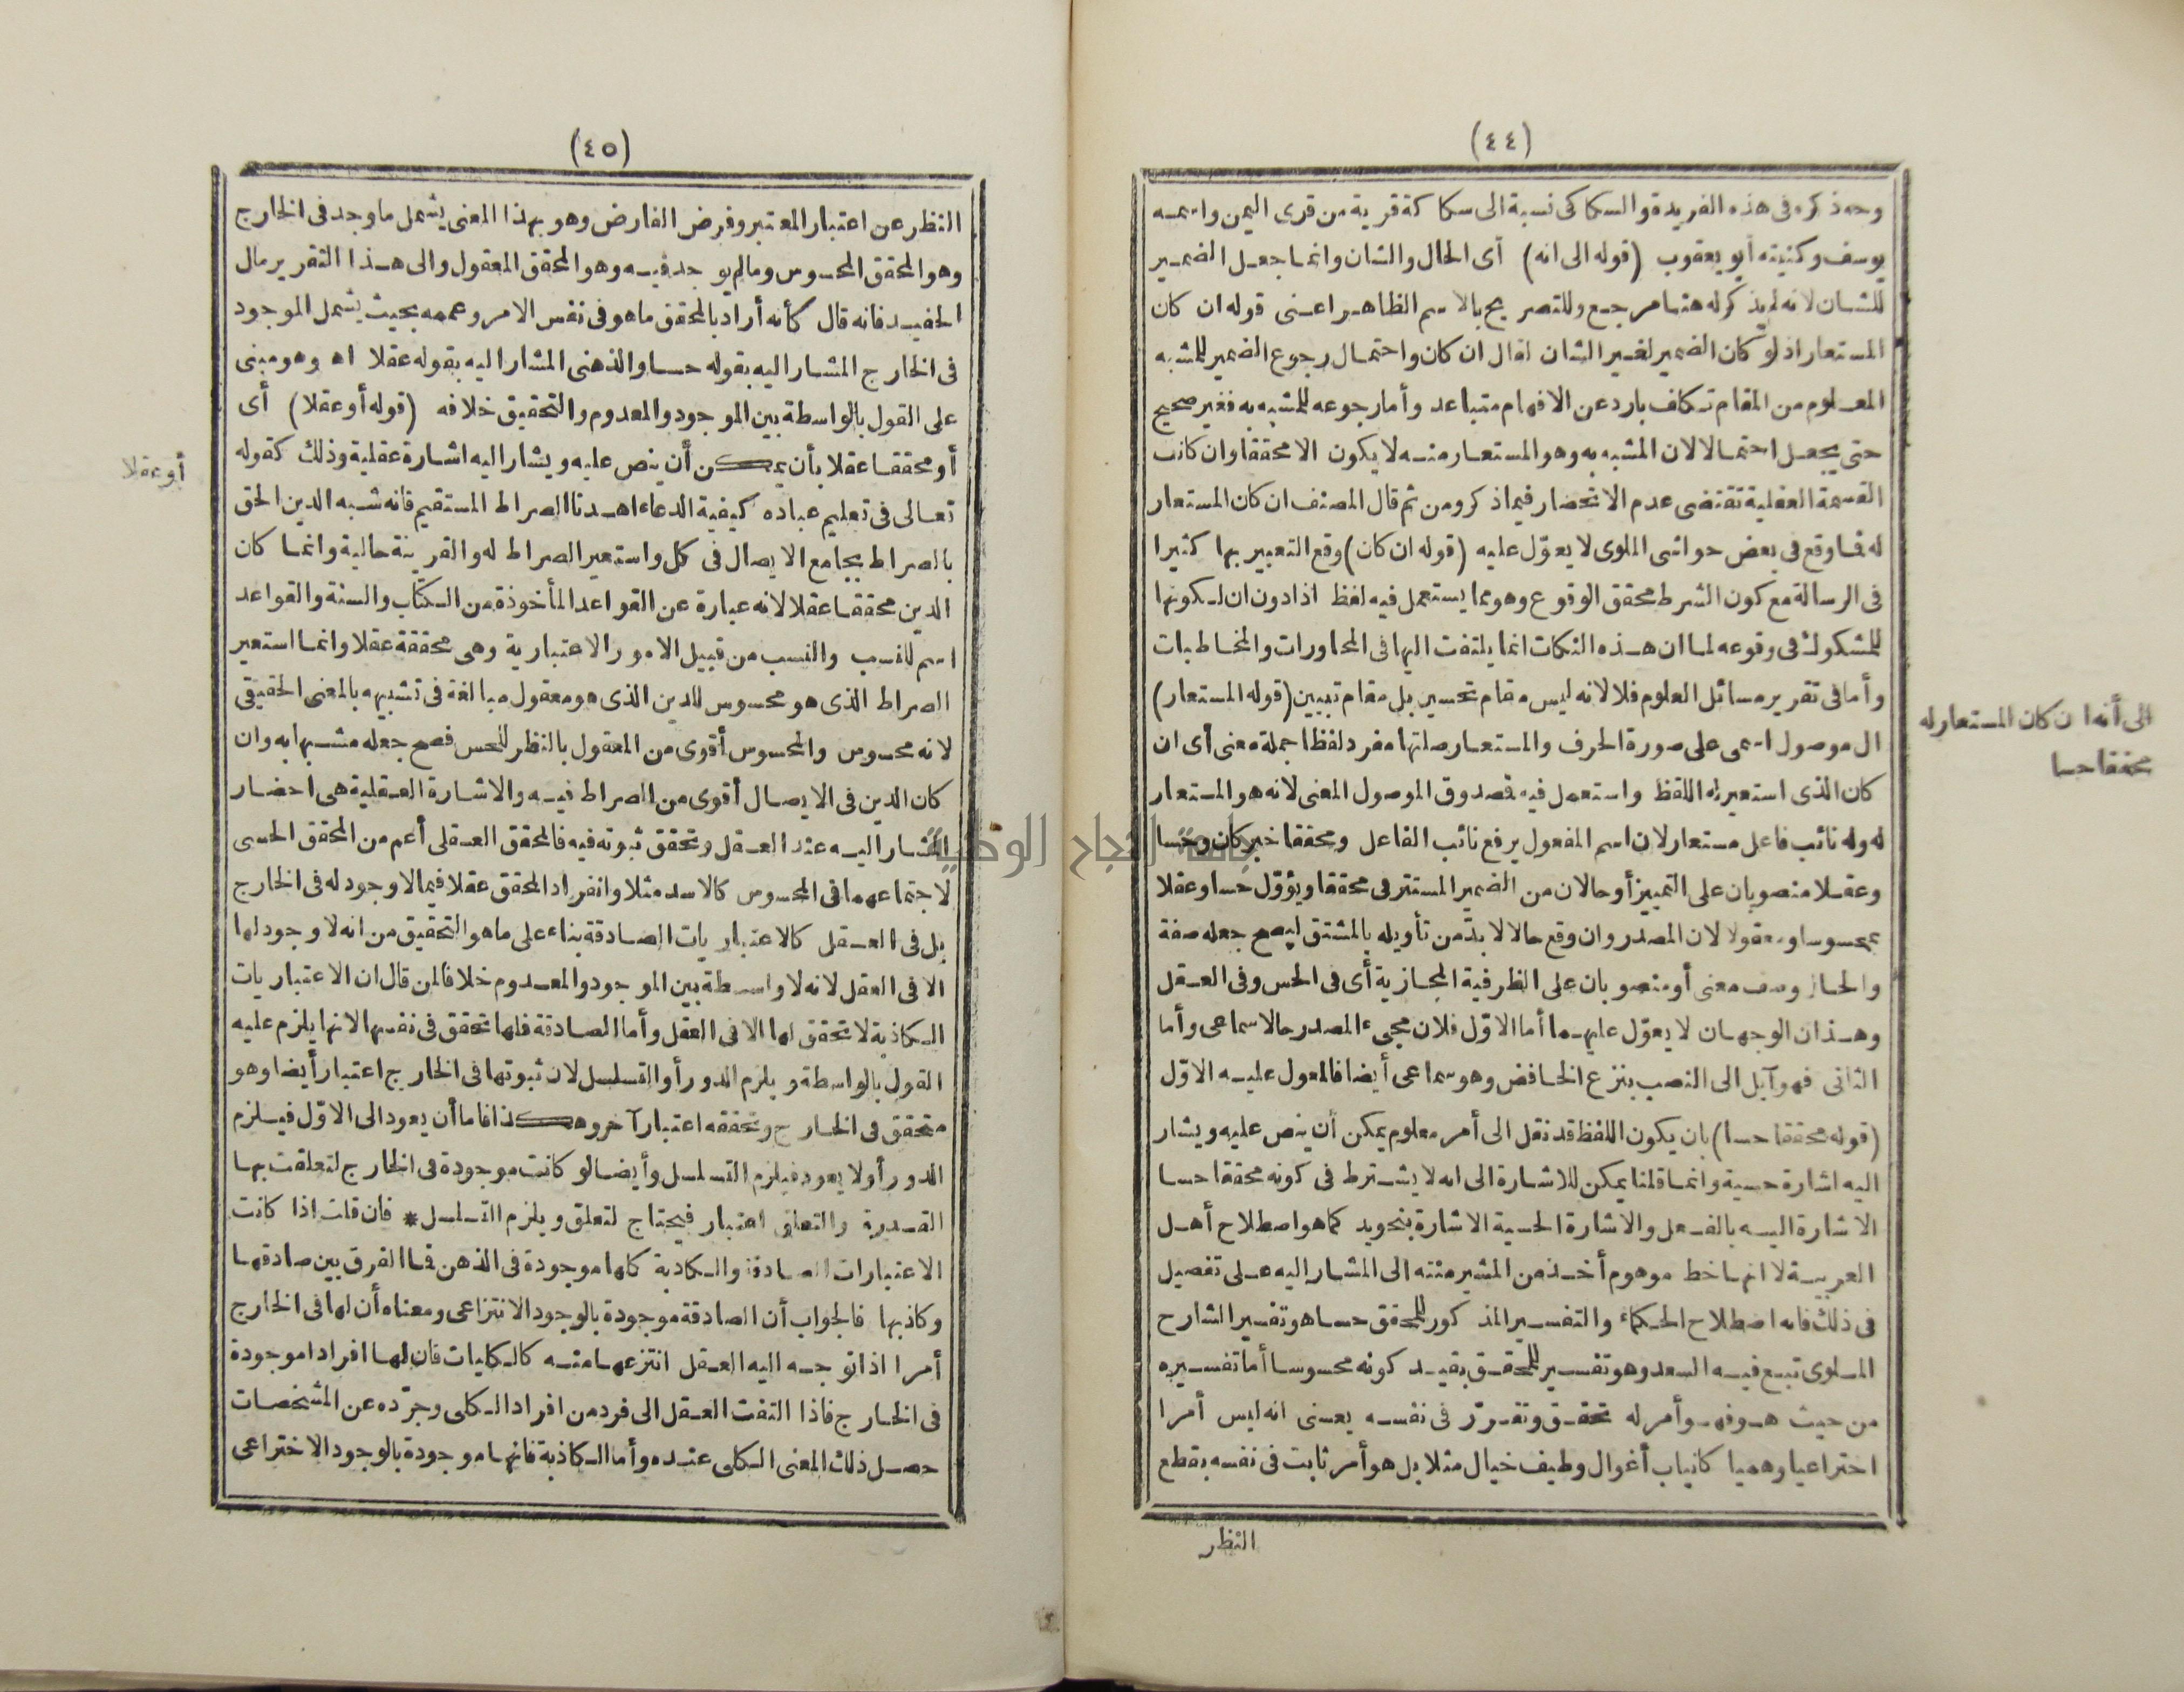 (٤٤)
وجه ذكره في هذه الفريدة والسكاكي نسبة الى سكاكة قرية من قرى اليمن واسمه
يوسف وكنيته أبو يعقوب (قوله الى انه) أى الحال والشان وانما جعل الضمير
للشان لانه لم يذكر له هنا مرجع وللتصريح بالاسم الظاهر اعنى قوله ان كان
المستعار اذ لو كان الضمير لغير الشان لقال ان كان واحتمال رجوع الضمير للمشبه
المعلوم من المقام تكلف بارد عن الافهام متباعد وأما رجوعه للمشبه به فغير صحيح
حتى يجعل احتمالا لان المشبه به وهو المستعار منه لا يكون الا محققا وان كانت
القسمة العقلية تقتضى عدم الانحصار فيما ذكر ومن ثم قال المصنف ان كان المستعار
له فما وقع في بعض حواشى الملوى لا يعوّل عليه (قوله ان كان) وقع التعبير بها كثيرا
في الرسالة مع كون الشرط محقق الوقوع وهو مما يستعمل فيه لفظ اذا دون ان لكونها
للمشكوك في وقوعه لما ان هذه النكات انما يلتفت اليها في المحاورات والمخاطبات
وأما في تقرير مسائل العلوم فلا لانه ليس مقام تحسير بل مقام تبيين (قوله المستعار)
ال موصول اسمى على صورة الحرف والمستعار صلتها مفرد لفظا جملة معنى أى ان
كان الذى استعير له اللفظ واستعمل فيه فصدوق الموصول المعنى لانه هو المستعار
له وله نائب فاعل مستعار لان اسم المفعول يرفع نائب الفاعل ومحققا خبر كان وحسا
وعقلا منصوبان على التمييز أو حالان من الضمير المستتر في محققا ويؤوّل حسا وعقلا
بمحسوسا ومعقولا لان المصدر وان وقع حالا لا بدّ من تأويله بالمشتق ليصح جعله صفة
والحال وصف معنى أو منصوبان على الظرفية المجازية أى في الحس وفي العقل
وهذان الوجهان لا يعوّل عليهما أما الاوّل فلان مجىء المصدر حالا سماعى وأما
الثانى فهو آيل الى النصب بنزع الخافض وهو سماعى أيضا فالمعول عليه الاوّل
(قوله محققا حسا) بان يكون اللفظ قد نقل الى أمر معلوم يمكن أن ينص عليه ويشار
اليه اشارة حسية وانما قلنا يمكن للاشارة الى انه لا يشترط في كونه محققا حسا
الاشارة اليه بالفعل والاشارة الحسية الاشارة بنحو يد كما هو اصطلاح أهل
العربية لا انها خط موهوم أخذ من المشير منته الى المشار اليه على تفصيل
في ذلك فانه اصطلاح الحكماء والتفسير المذكور للمحقق حسا هو تفسير الشارح
الملوى تبع فيه السعد وهو تفسير للمحقق بقيد كونه محسوسا أما تفسيره
من حيث هو فهو أمر له تحقق وتقرّر في نفسه يعنى انه ليس أمرا
اختراعيا وهميا كانياب أغوال وطيف خيال مثلا بل هو أمر ثابت في نفسه بقطع
النظر
الى أنه ان كان المستعار له
محققا حسا
(٤٥)
النظر عن اعتبار المعتبر وفرض الفارض وهو بهذا المعنى يشمل ما وجد في الخارج
وهو المحقق المحسوس وما لم يوجد فيه وهو المحقق المعقول والى هذا التقرير مال
الحفيد فانه قال كأنه أراد بالمحقق ما هو في نفس الامر وعممه بحيث يشمل الموجود
في الخارج المشار اليه بقوله حسا والذهنى المشار اليه بقوله عقلا اه وهو مبنى
على القول بالواسطة بين الموجود والمعدوم والتحقيق خلافه (قوله أو عقلا) أى
أو محققا عقلا بأن يمكن أن ينص عليه ويشار اليه اشارة عقلية وذلك كقوله
تعالى في تعليم عباده كيفية الدعاء اهدنا الصراط المستقيم فانه شبه الدين الحق
بالصراط بجامع الايصال في كل واستعير الصراط له والقرينة حالية وانما كان
الدين محققا عقلا لانه عبارة عن القواعد المأخوذة من الكتاب والسنة والقواعد
اسم للنسب والنسب من قبيل الامور الاعتبارية وهى محققة عقلا وانما استعير
الصراط الذى هو محسوس للدين الذى هو معقول مبالغة في تشبيهه بالمعنى الحقيقى
لانه محسوس والمحسوس أقوى من المعقول بالنظر للحس فصح جعله مشبها به وان
كان الدين في الايصال أقوى من الصراط فيه والاشارة العقلية هى احضار
المشار اليه عند العقل وتحقق ثبوته فيه فالمحقق العقلى أعم من المحقق الحسى
لاجتماعهما في المحسوس كالاسد مثلا وانفراد المحقق عقلا فيما لا وجود له في الخارج
بل في العقل كالاعتباريات الصادقة بناء على ما هو التحقيق من انه لا وجود لها
الا في العقل لانه لا واسطة بين الموجود والمعدوم خلافا لمن قال ان الاعتباريات
الكاذبة لا تحقق لها الا في العقل وأما الصادقة فلها تحقق في نفسها لانها يلزم عليه
القول بالواسطة ويلزم الدور أو التسلسل لان ثبوتها في الخارج اعتبار أيضا وهو
متحقق في الخارج وتحققه اعتبار آخر وهكذا فاما أن يعود الى الاوّل فيلزم
الدور أو لا يعود فيلزم التسلسل وأيضا لو كانت موجودة في الخارج لتعلقت بها
القدرة والتعلق اعتبار فيحتاج لتعلق ويلزم التسلسل * فان قلت اذا كانت
الاعتبارات الصادقة والكاذبة كلها موجودة في الذهن فما الفرق بين صادقها
وكاذبها فالجواب أن الصادقة موجودة بالوجود الانتزاعى ومعناه أن لها في الخارج
أمرا اذا توجه اليه العقل انتزعها منه كالكليات فان لها افرادا موجودة
في الخارج فاذا التفت العقل الى فرد من افراد الكلى وجرّده عن المشخصات
حصل ذلك المعنى الكلى عنده وأما الكاذبة فانها موجودة بالوجود الاختراعى
أو عقلا
جامعة النجاح الوطنية